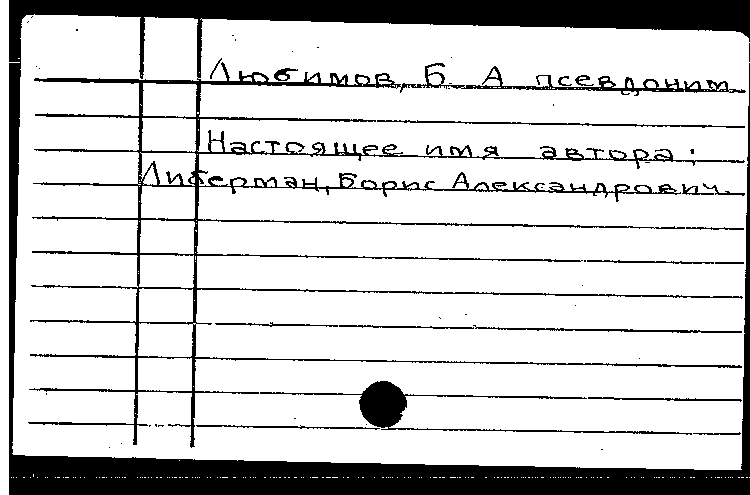 Любимов, Б. А псевдоним.
Настоящее имя автора:
Либерман, Борис Александрович.